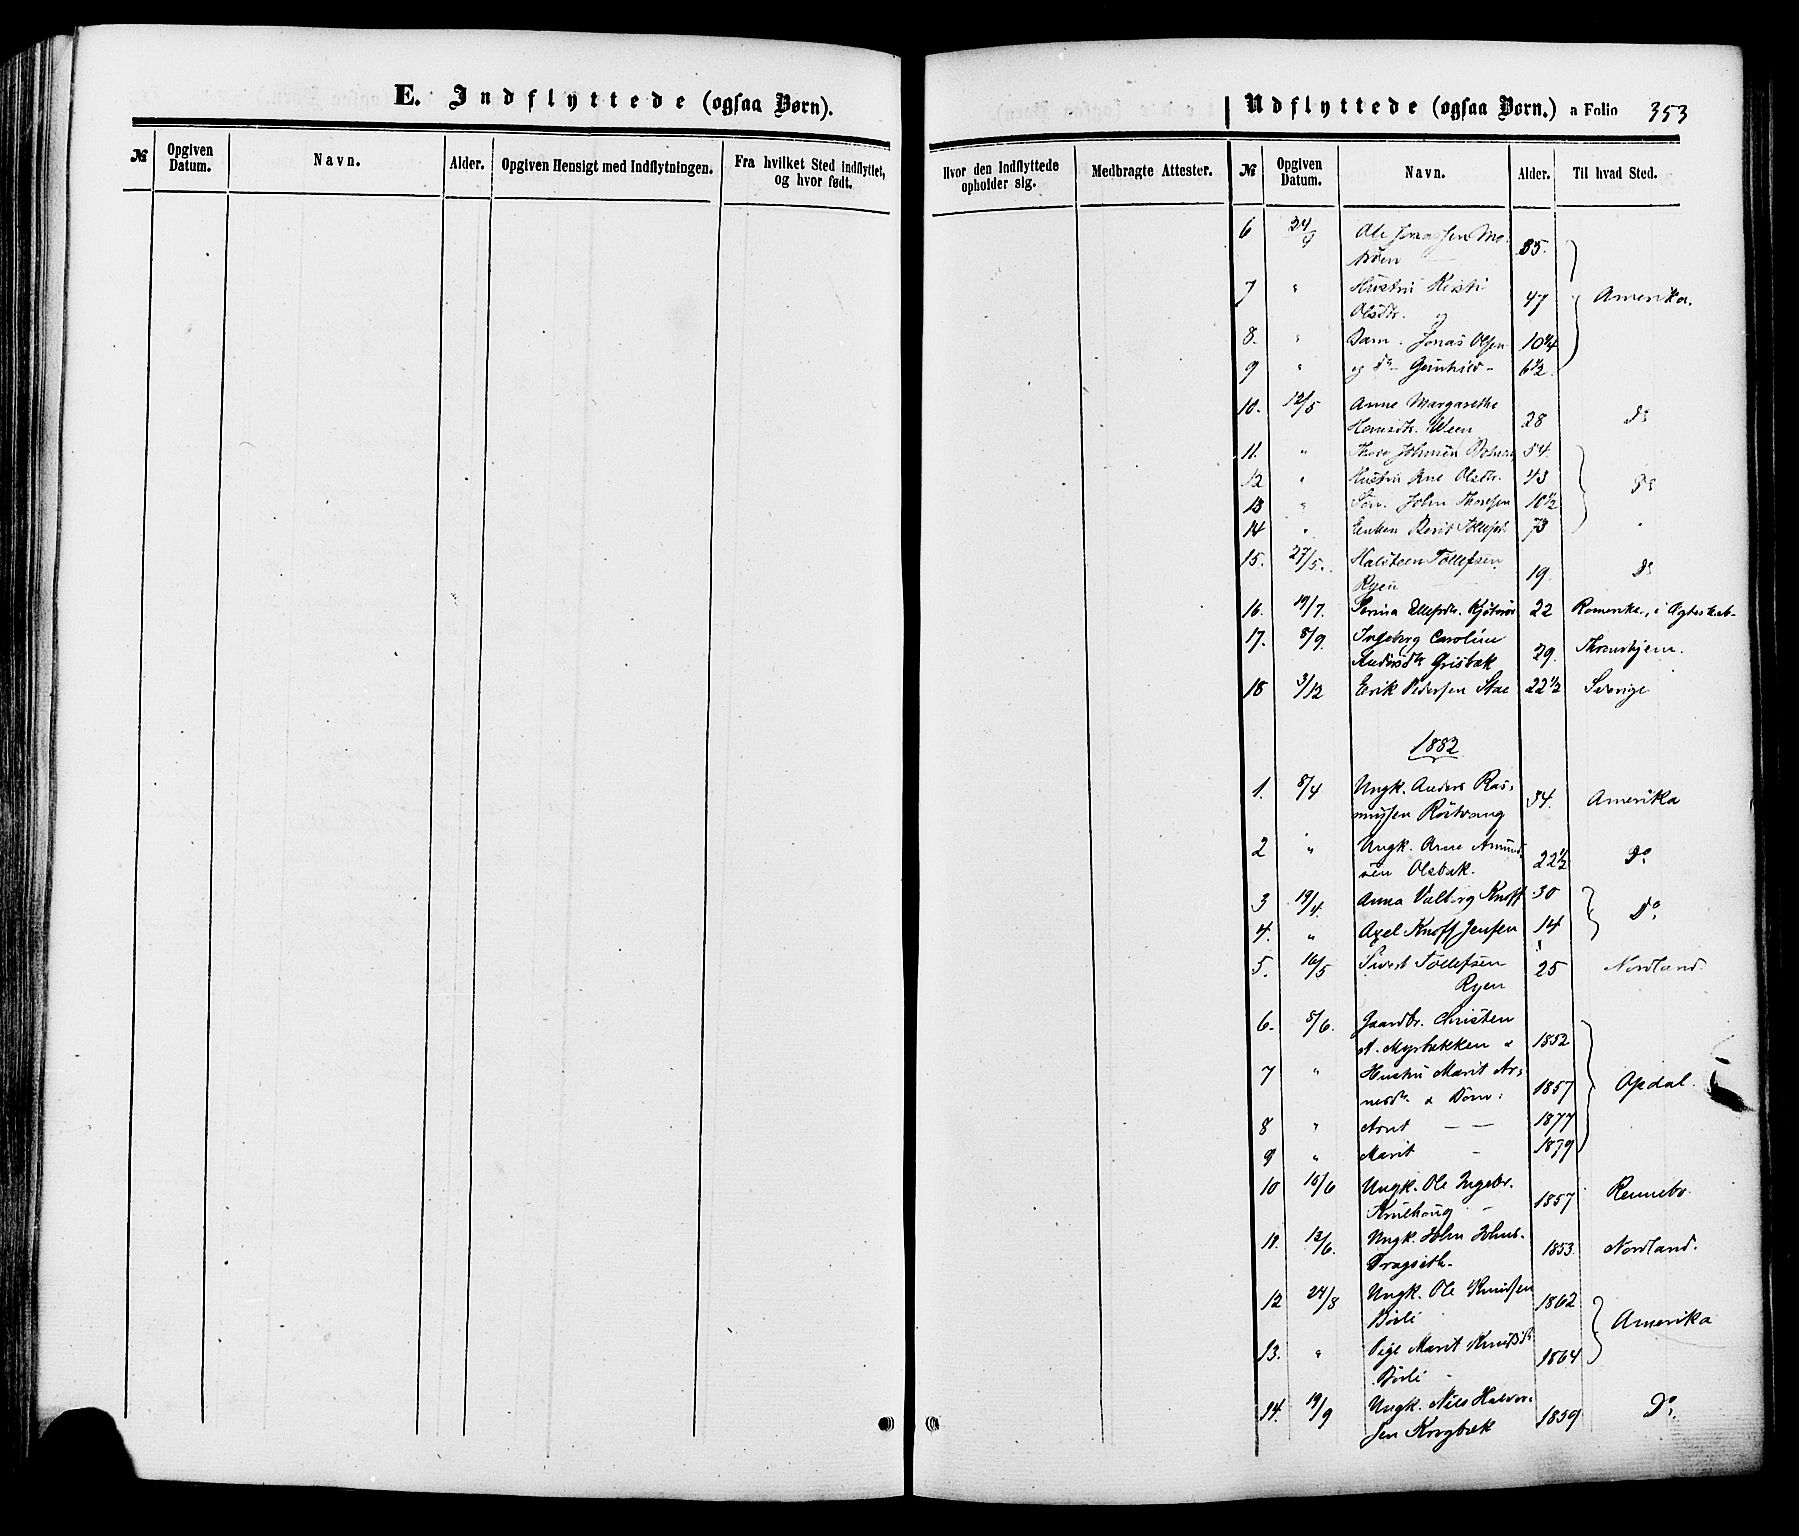 E. Indflyttede (ogsaa Børn).
№
Opgiven Datum.
Navn.
Alder.
Opgiven Hensigt med Indflytningen.
Fra hvilket Sted indflyttet, og hvor født.
Udflyttede (ogsaa Børn.) a Folio 353
Hvor den Indflyttede opholder sig.
Medbragte Attester.
№
Opgiven Datum.
Navn.
Alder.
Til hvad Sted.
6 24/4 Ole
7 " Hustru Kisti 47 Amerika.
Olsdtr. og
8. " Barn. Jonas Olsen 10 1/4
9 " og do - Gunhild - 6 1/2
10. 12/5 Anne Margarethe
Hansdtr. Ween 28 Do
11. " Thore Johnsen 54
12 " Hustru Ane Olsdtr. 43 Do
13 " Søn. John Thoresen 10 1/2
14 " Enken Berit 73 "
15. 27/5. Halsteen Tollefsen
Ryen 19. Do
16. 19/7. 22 Romerike, i Ægteskab
17. 8/9. Ingeborg Caroline
Andersdtr Grisbæk 29. Thronhjem.
18 3/12 Erik Pedersen Stae 22 1/2 Sverige
1882
1. 8/4 Ungk. Anders Ras-
mussen Röstvang 34. Amerika
2 " Ungk. Arne Amund-
sen Olsbak. 22 1/2 Do
3 19/4. Anna Valborg Knoff 30
4. " Axel Knoff Jensen 14 Do
5. 16/5 Sivert Tollefsen 25 Nordland.
Ryen
6. 5/6. Gaardbr. Christen
A. Myrbækken & 1852
7 " Hustru Marit Ar-
nesdtr & Börn: 1857 Opdal.
8 " Arnt — — 1877
9 " Marit - 1879
10 10/6 Ungk. Ole Ingebr. 1857 Rennebo.
11. 12/6. Ungk. John Johns. 1853. Nordland.
Dragseth.
12 24/8 Ungk. Ole Knudsen 1862
Börli Amerika
13. " Pige Marit Knudsdtr
Börli 1864
14. 19/9 Ungk. Nils Halvor-
sen Krogbæk 1859 Do